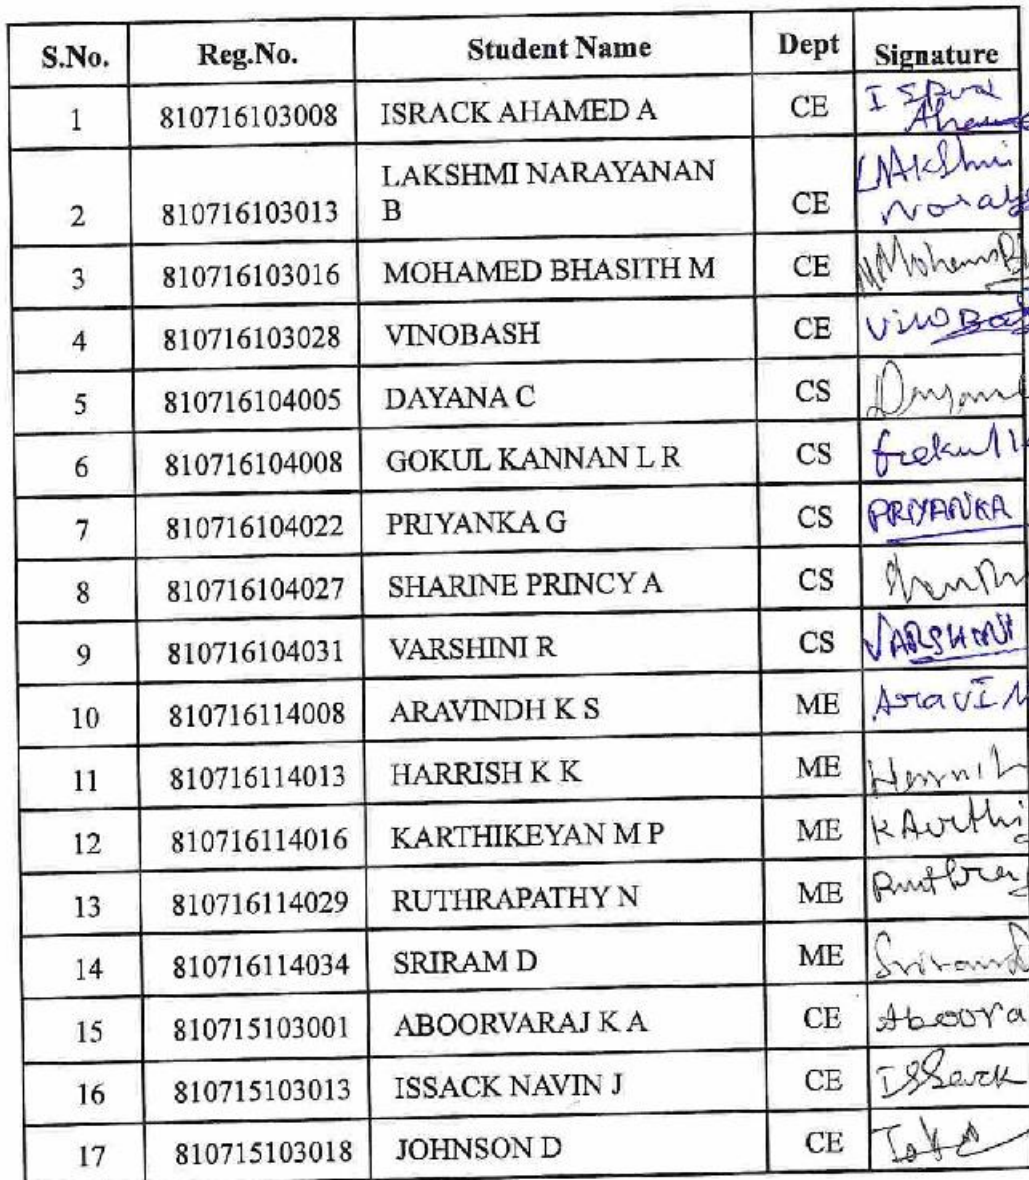 S.No. Reg.No. Student Name Dept Signature
1 810716103008 ISRACK AHAMED A CE
LAKSHMI NARAYANAN
2 810716103013 B CE LAKshmi
3 810716103016 MOHAMED BHASITH M CE
4 810716103028 VINOBASH CE
5 810716104005 DAYANA C CS
6 810716104008 GOKUL KANNAN L R CS
7 810716104022 PRIYANKA G CS PRIYANKA
8 810716104027 SHARINE PRINCY A CS
9 810716104031 VARSHINI R CS VARSHINI
10 810716114008 ARAVINDH K S ME
11 810716114013 HARRISH K K ME
12 810716114016 KARTHIKEYAN M P ME
13 810716114029 RUTHRAPATHY N ME
14 810716114034 SRIRAM D ME
15 810715103001 ABOORVARAJ K A CE Aboora
16 810715103013 ISSACK NAVIN J CE
17 810715103018 JOHNSON D CE